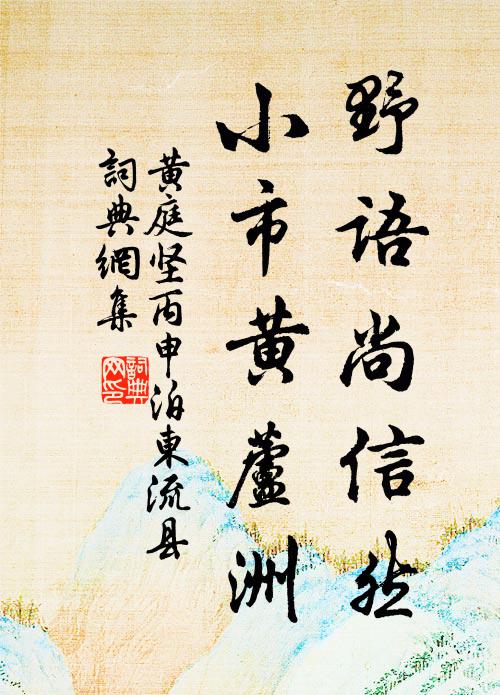 野语尚信然
小市黄蘆洲
黄庭坚丙申泊東流县
詞典網集
詞典网印